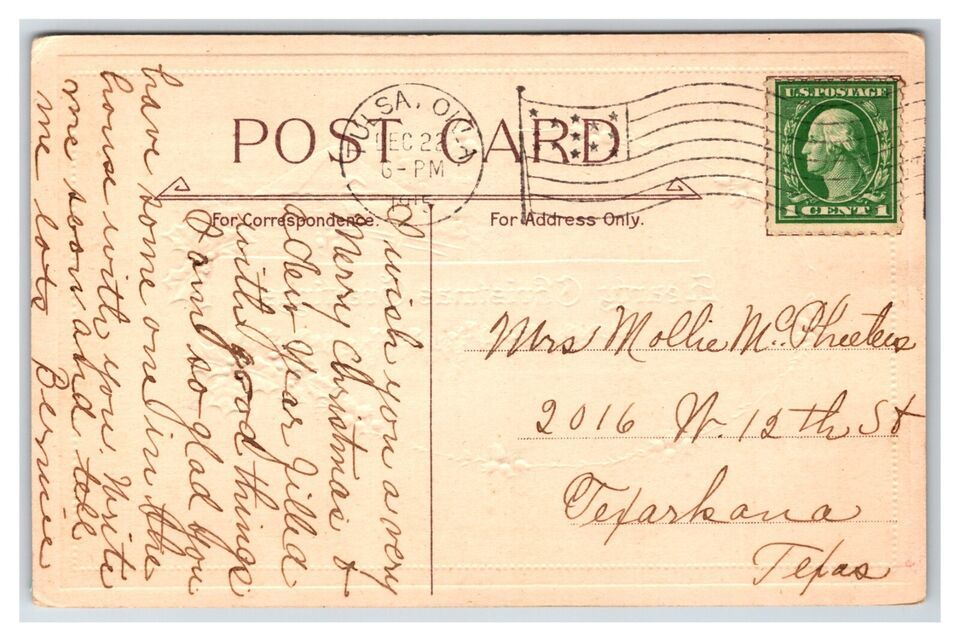 POST CARD
TULSA, OKLA
DEC 22
6-PM
1915
U.S. POSTAGE
1 CENT 1
For Correspondence.
For Address Only.
I wish you a very
Merry Christmas &
a New Year filled
with good things
I am so glad you
have some one in the
house with you. Write
me soon and tell
me lots Bernice
Mrs Mollie McPheeters
2016 W. 12th St
Texarkana
Texas